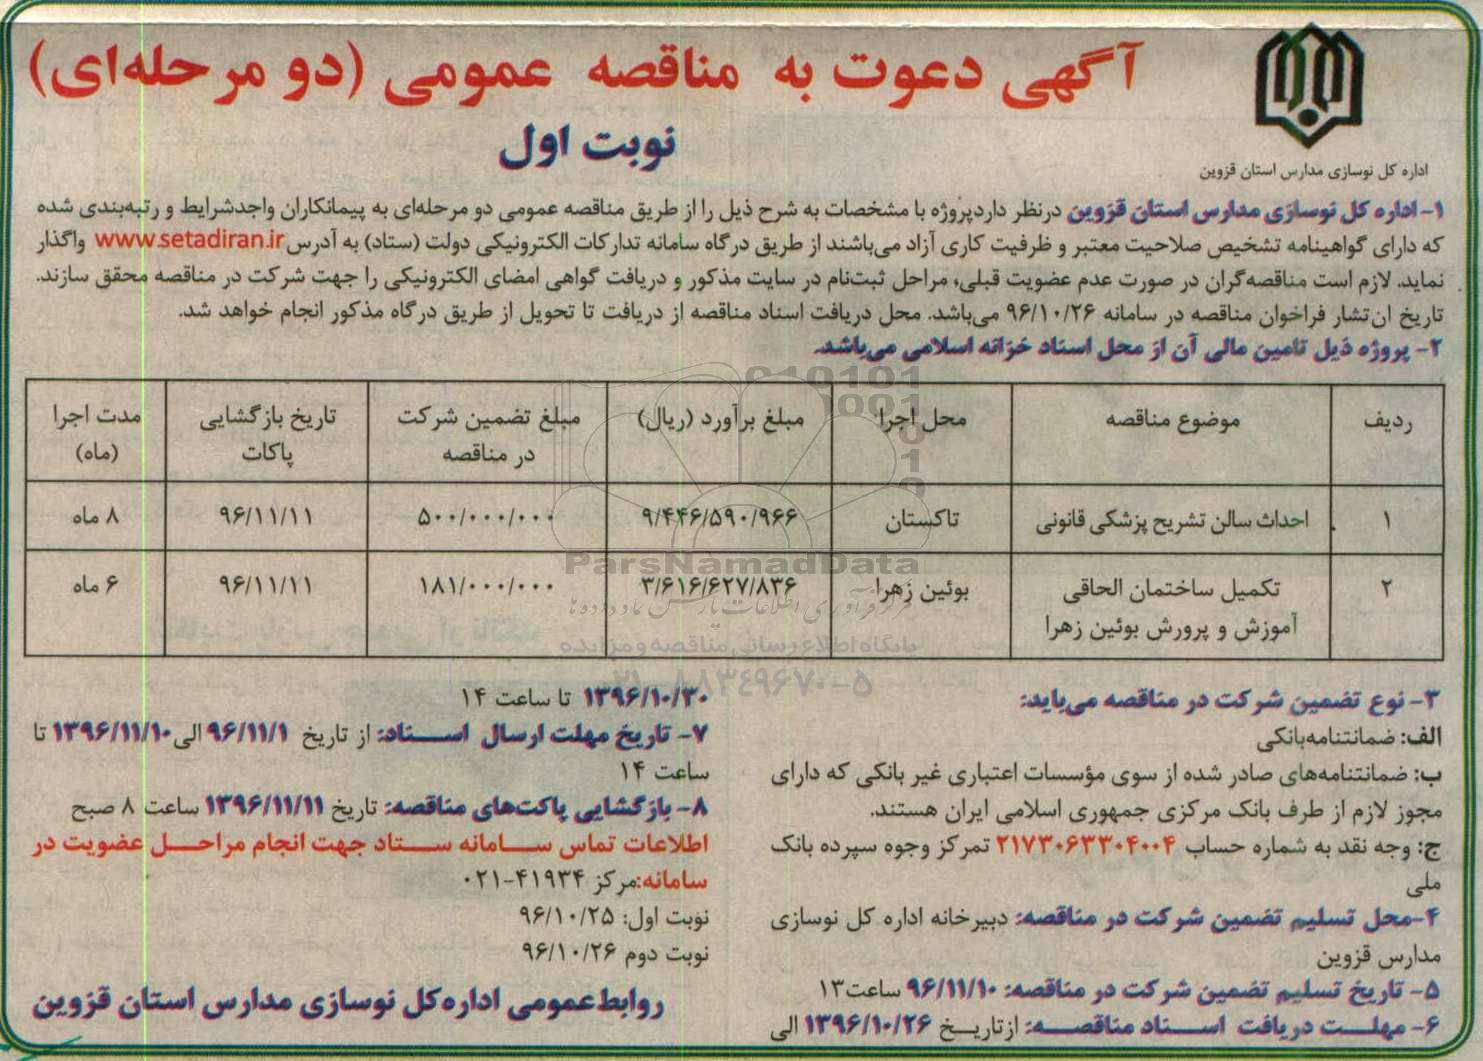 آگهی دعوت به مناقصه عمومی (دو مرحله‌ای)
نوبت اول
اداره کل نوسازی مدارس استان قزوین
۱- اداره کل نوسازی مدارس استان قزوین درنظر دارد پروژه با مشخصات به شرح ذیل را از طریق مناقصه عمومی دو مرحله‌ای به پیمانکاران واجدشرایط و رتبه‌بندی شده
که دارای گواهینامه تشخیص صلاحیت معتبر و ظرفیت کاری آزاد می‌باشند از طریق درگاه سامانه تدارکات الکترونیکی دولت (ستاد) به آدرس www.setadiran.ir واگذار
نماید. لازم است مناقصه‌گران در صورت عدم عضویت قبلی، مراحل ثبت‌نام در سایت مذکور و دریافت گواهی امضای الکترونیکی را جهت شرکت در مناقصه محقق سازند.
تاریخ انتشار فراخوان مناقصه در سامانه ۹۶/۱۰/۲۶ می‌باشد. محل دریافت اسناد مناقصه از دریافت تا تحویل از طریق درگاه مذکور انجام خواهد شد.
۲- پروژه ذیل تامین مالی آن از محل اسناد خزانه اسلامی می‌باشد.
ردیف موضوع مناقصه محل اجرا مبلغ برآورد (ریال) مبلغ تضمین شرکت در مناقصه تاریخ بازگشایی پاکات مدت اجرا (ماه)
۱ احداث سالن تشریح پزشکی قانونی تاکستان ۹/۴۴۶/۵۹۰/۹۶۶ ۵۰۰/۰۰۰/۰۰۰ ۹۶/۱۱/۱۱ ۸ ماه
۲ تکمیل ساختمان الحاقی آموزش و پرورش بوئین زهرا بوئین زهرا ۳/۶۱۶/۶۲۷/۸۳۶ ۱۸۱/۰۰۰/۰۰۰ ۹۶/۱۱/۱۱ ۶ ماه
ParsNamadData
مرکز فرآوری اطلاعات پارس نماد داده‌ها
پایگاه اطلاع رسانی مناقصه و مزایده
۰۲۱-۸۸۳۴۹۶۷۰-۵
۳- نوع تضمین شرکت در مناقصه می‌باید:
الف: ضمانتنامه‌بانکی
ب: ضمانتنامه‌های صادر شده از سوی مؤسسات اعتباری غیر بانکی که دارای
مجوز لازم از طرف بانک مرکزی جمهوری اسلامی ایران هستند.
ج: وجه نقد به شماره حساب ۲۱۷۳۰۶۳۳۰۴۰۰۴ تمرکز وجوه سپرده بانک
ملی
۴-محل تسلیم تضمین شرکت در مناقصه: دبیرخانه اداره کل نوسازی
مدارس قزوین
۵- تاریخ تسلیم تضمین شرکت در مناقصه: ۹۶/۱۱/۱۰ ساعت۱۳
۶- مهلت دریافت اسناد مناقصه: ازتاریخ ۱۳۹۶/۱۰/۲۶ الی
۱۳۹۶/۱۰/۳۰ تا ساعت ۱۴
۷- تاریخ مهلت ارسال اسناد: از تاریخ ۹۶/۱۱/۱ الی ۱۳۹۶/۱۱/۱۰ تا
ساعت ۱۴
۸- بازگشایی پاکت‌های مناقصه: تاریخ ۱۳۹۶/۱۱/۱۱ ساعت ۸ صبح
اطلاعات تماس سامانه ستاد جهت انجام مراحل عضویت در
سامانه:مرکز ۴۱۹۳۴-۰۲۱
نوبت اول: ۹۶/۱۰/۲۵
نوبت دوم ۹۶/۱۰/۲۶
روابط‌عمومی اداره‌کل نوسازی مدارس استان قزوین